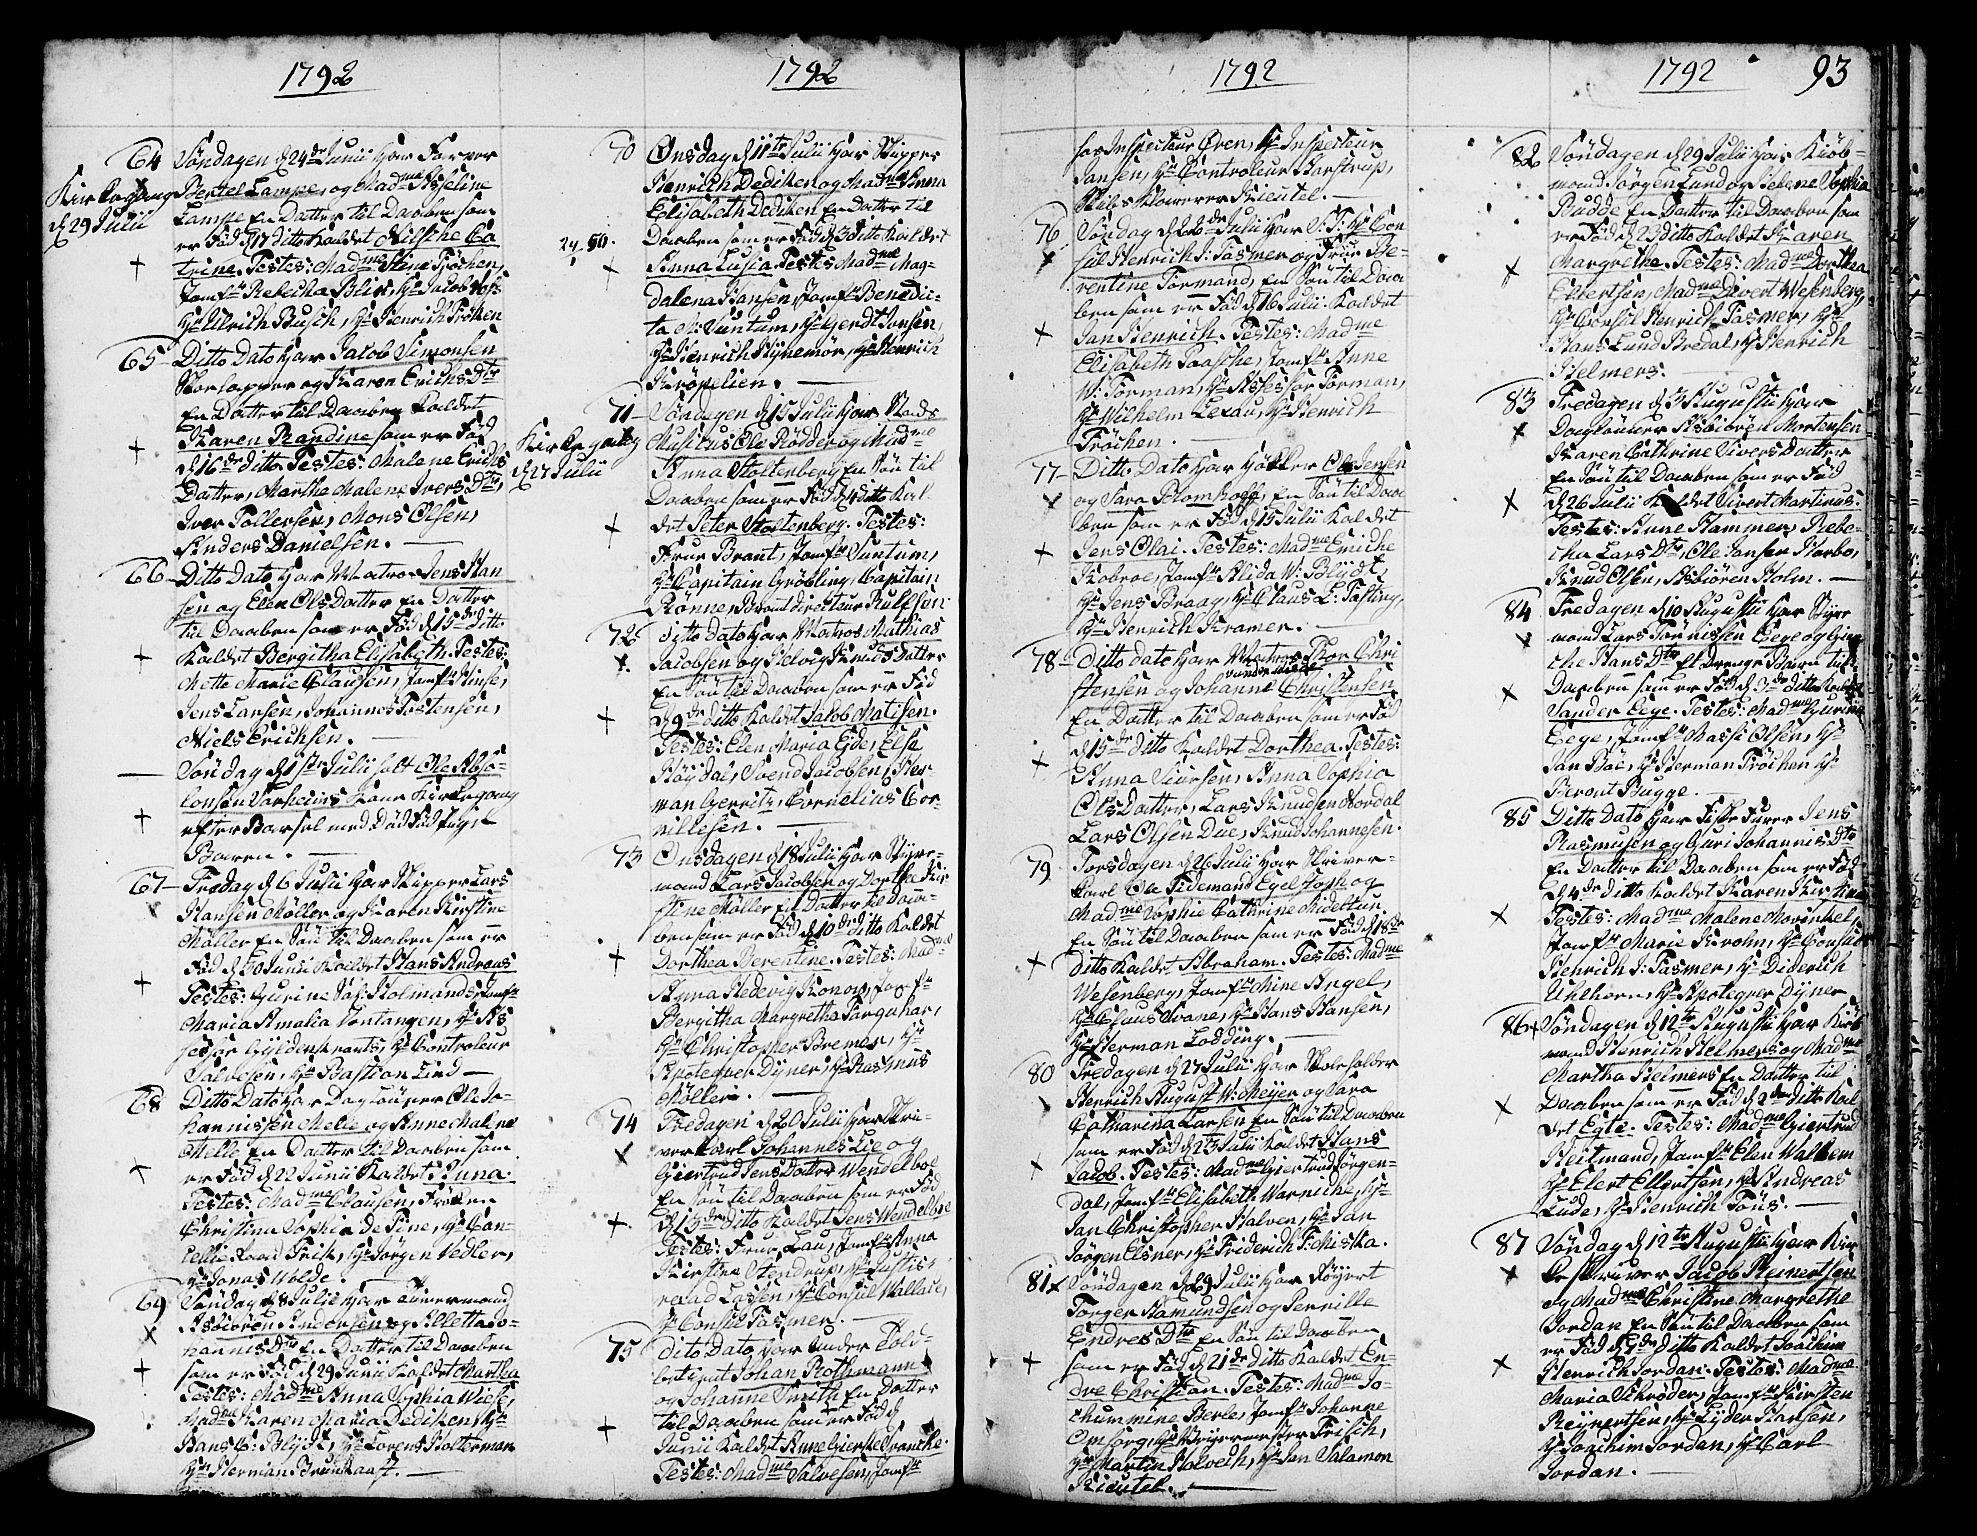 1792
64 Søndagen d 24de Junii hʒar Farver
Kirkegang
d 29 Julii
Bertel Lampe, og Madme Asseline
Lampe En Datter til Daaben som
er Fød d 17 ditto kaldet Nilsche Ca
trine. Testes: Madme Stine Frøchen,
Jomfr Rebecka Blix, Hr Jacob
Hr Ulrich Busch, Hr Henrich Frøken
65 Ditto Dato har Jacob Simonsen
og Karen Erichs Dtr
En Datter til Daaben kaldet
Karen Randine som er Fød
d 16de ditto Testes: Malene Erichs
Datter, Martha Malene Ivers Dtr,
Iver Tollersen, Mons Olsen,
Anders Danielsen.
66 Ditto Dato har Matros Jens Han
sen og Elen Ols Datter En Datter
til Daaben som er Fød d 15de ditto
kaldet Bergitha Elisabeth. Testes:
Mette Marie Clausen, Jomfr
Jens Larsen, Johannes Tostensen,
Niels Erichsen.
Søndag d 1ste Julii holt Ole Abso-
lonsen Kone Kirkegang
efter Barsel med Død Fød
Baren.
67 Fredag d 6 Julii har Skipper Lars
Hansen Møller og Karen Kirstine
Møller En Søn til Daaben som er
Fød d 30 Junii kaldet Hans Andreas
Testes: Gurine Holmands, Jomfr
Maria Amalia Vontangen, Hr As
sessor Gyldenkrants, Hr Controleur
Salvesen, Hr Bastian Lind
68 Ditto Dato har Dag Løner Ole Jo-
hannissen Melle og Anne Malene
Melle En Datter til Daaben som
er Fød d 22 Junii kaldet Anna.
Testes: Madme Clausen, Frøken
Christina Sophia de Fine, Hr Can-
cellie Raad Frisk, Hr Jørgen Vedler,
Hr Jonas Wolde.
69 Søndag d 8 Julii har Timermand
Asbiøren Andersen og Alletta Jo-
hannis Dtr En Datter til Daaben
som er Fød d 29 Junii kaldet Martha
Testes: Madme Anna Sophia Wiese,
Madme Karen Maria Dediken, Hr
Hans C: Blydt, Hr Lorens Holterman
Hr Herman
1792
70 Onsdag d 11te Julii har Skipper
Henrich Dediken og Madme Anna
Elisabeth Dediken En Datter til
Daaben som er Fød d 3 ditto kaldet
Anna Lusia. Testes Madme Mag-
dalena Hansen, Jomfr Benedic-
ta M: Suntum, Hr Gerdt Jonsen,
Hr Henrich Hynemør, Hr Henrich
Krøpelien.
71 Søndagen d 15 Julii har Stads
Kirkegang
d 27 Julii
Musicus Ole Rødder og Madme
Anna Stoltenberg En Søn til
Daaben som er Fød d 4 ditto kal-
det Peter Stoltenberg. Testes:
Frue Brant, Jomfr Suntum,
Hr Capitain Grøbling, Capitain
Rønne, Brant Directeur Rulfsen
72 Ditto dato har Matros Mathias
Jacobsen og Helvig Knuds Datter
En Søn til Daaben som er Fød
d 9de ditto kaldet Jacob Matisen.
Testes: Elen Maria Eide, Else
Høydal, Svend Jacobsen, Her-
man Gerritz, Cornelius Cor-
nillesen.
73 Onsdagen d 18 Julii har Styre-
mand Lars Jacobsen og Dorthe Kir
stine Møller En Datter til Daa-
ben som er Fød d 10de ditto kaldet
Dorthea Berentine. Testes: Mad-
Anna Hedevig Konow, Jomfr
Bergitha Margretha Farquhar,
Hr Christopher Bremer, Hr
Apoteqver Dyner, Hr Rasmus
Møller.
74 Fredagen d 20 Julii har Skri-
ver Karl Johannes Lie og
Giertrud Jens Datter Wendelboe
En Søn til Daaben som er Fød
d 13de ditto kaldet Jens Wendelboe
Testes: Frue Lau, Jomfr Anna
Kirstine Stendrup, Hr Justis-
raad Lassen, Hr Consul Wallace,
Hr Consul Fasmer.
75 Dito Dato har Under Told-
betient Johan Rothmann
og Johanne Smith En Datter
til Daaben som er Fød d
Junii kaldet Anne Gierke
Testes: Madme Salvesen, Jomfr
1792
for Inspecteur Øven, Hr Inspecteur
Jansen, Hr Controleur Harstrup,
Skibs Klarerer Kreutel.
76 Søndag d 22de Julii har S:T: Hr Con
sul Henrich J: Fasmer og Frue Be-
rentine Forman, En Søn til Daa
ben som er Fød d 16 Julii. kaldet
Jan Henrich. Testes: Madme
Elisabeth Paasche, Jomfr Anne
W: Forman, Hr Assessor Forman,
Hr Wilhelm Lexau, Hr Henrich
Frøchen.
77 Ditto Dato har Høkker Ole Jensen
og Sara Blomhoff, En Søn til Daa
ben som er Fød d 15 Julii kaldet
Jens Olai. Testes: Madme Emiche
Kobroe, Jomfr Alida W: Blydt,
Hr Jens Braag, Hr Claus L: Fasting,
Hr Henrich Kramer.
78 Ditto dato har Matros Thor Chri
stensen og Johanne Christensen
En Datter til Daaben som er Fød
d 15de ditto kaldet Dorthea. Testes:
Anna Siursen, Anna Sophia
Ols Datter, Lars Knudsen Nordal
Lars Olsen Due, Knud Johannesen.
79 Torsdagen d 26 Julii har Skriver-
Karl Ole Tidemand Egelstoph og
Madme Sophie Cathrine Mideltun
En Søn til Daaben som er Fød d 18de
ditto kaldet Abraham. Testes: Madme
Wesenberg, Jomfr Mine Angel,
Hr Claus Svane, Hr Hans Hansen,
Hr Herman Lodding.
80 Fredagen d 27 Julii har Skoleholder
Henrich August W: Meyer og Sara
Catharina Larsen En Søn til Daaben
som er Fød d 23 Julii kaldet Hans
Jacob. Testes: Madme Giertrud Jørgen-
dal, Jomfr Elisabeth Warniche, Hr
Jan Christopher Halven, Hr Jan
Jørgen Elsner, Hr Friderich F: Miska.
81 Søndagen d 29 Julii har Føyert
Torger Hamundsen og Pernille
Endres Dtr En Søn til Daaben
som er Fød d 21de ditto kaldet En-
dre Christian. Testes: Madme Jo-
chummine Berle, Jomfr Johanne
Omsorg, Hr Frisch,
Hr Martin Holveth, Hr Jan Salamon
Kreutel.
1792 93
82 Søndagen d 29 Julii har Kiøb-
mand Jørgen Lund og Helene Sophia
Budde En Datter til Daaben som
er Fød d 23 ditto kaldet Karen
Margrethe. Testes: Madme Dorthea
Ellertsen, Madme Sivert Wesenberg,
Hr Consul Henrich Fasmer, Hr
Hans Lund Bredal, Hr Henrich
Helmers.
83 Fredagen d 3 Augusti har
Daglønner Asbiøren Mortensen
Karen Cathrine Sivers Datter
En Søn til Daaben som er Fød
d 26 Julii kaldet Sivert Martinus.
Testes: Anne Hammer, Rebe-
cka Lars Dtr, Ole Jansen Korbo,
Knud Olsen, Asbiøren Holm.
84 Fredagen d 10 Augusti har Styre
mand Lars Tønnissen Eege og Gien
che Hans Dtr Et Drenge Baren til
Daaben som er Fød d 3de ditto kaldet
Sander Eege. Testes: Madme Gurine
Eege, Jomfr Masse Olsen, Hr
Jan Boe, Hr Herman Frøchen Hr
Beront Bugge.
85 Ditto Dato har Fiske Fører Jens
Rasmusen og Guri Johannis Dtr
En Datter til Daaben som er Fød
d 4de ditto kaldet Karen Kirstine
Testes: Madme Malene Morinkel,
Jomfr Marie Krohn, Hr Consul
Henrich J: Fasmer, Hr Diderich
Uhlhorn, Hr Apoteqver Dyner
86 Søndagen d 12te Augusti har Kiøb
mand Henrich Helmers og Madme
Martha Helmers En Datter til
Daaben som er Fød d 2den ditto kal
det Egte. Testes: Madme Giertrud
Heitmand, Jomfr Elen Walhem
Hr Elert Ellertsen, Hr Andreas
Lude, Hr Henrich Tøns.
87 Søndag d 12te Augusti har Kir
ke Skriver Jacob Reinertsen
og Madme Christine Margrethe
Jordan En Søn til Daaben som
er Fød d 1de ditto kaldet Joachim
Henrich Jordan. Testes: Madme
Maria Schrøder, Jomfr Kirsten
Reynertsen, Hr Lyder Hansen,
Hr Joachim Jordan, Hr Carl
Jordan.